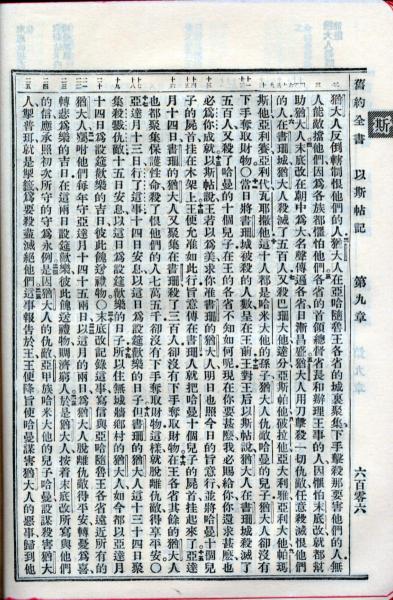 斯
舊約全書　以斯帖記　第九章　六百零六
猶大人反倒轄制恨他們的人猶大人在亞哈隨魯王各省的城裏聚集下手擊殺那要害他們的人無
人能敵擋他們因為各族都懼怕他們各省的首領總督省長和辦理王事的人因懼怕末底改就都幫
助猶大人末底改在朝中為大名聲傳遍各省日漸昌盛猶大人用刀擊殺一切仇敵任意殺滅恨他們
的人在書珊城猶大人殺滅了五百人又殺巴珊大他達分亞斯帕他破拉他亞大利雅亞利大他帕瑪
斯他亞利賽亞利代瓦耶撒他這十人都是哈米大他的孫子猶大人仇敵哈曼的兒子猶大人卻沒有
下手奪取財物○當日將書珊城被殺的人數呈在王前王對王后以斯帖說猶大人在書珊城殺滅了
五百人又殺了哈曼的十個兒子在王的各省不知如何呢現在你要甚麼我必賜給你你還求甚麼也
必為你成就以斯帖說王若以為美求你准書珊的猶大人明日也照今日的旨意行並將哈曼十個兒
子的屍首挂在木架上王便允准如此行旨意傳在書珊人就把哈曼十個兒子的屍首挂起來了亞達
月十四日書珊的猶大人又聚集在書珊殺了三百人卻沒有下手奪取財物在王各省其餘的猶大人
也都聚集保護性命殺了恨他們的人七萬五千卻沒有下手奪取財物這樣就脫離仇敵得享平安○
亞達月十三日行了這事十四日安息以這日為設筵歡樂的日子但書珊的猶大人這十三十四日聚
集殺戮仇敵十五日安息以這日為設筵歡樂的日子所以住無城牆鄉村的猶大人如今都以亞達月
十四日為設筵歡樂的吉日彼此餽送禮物○末底改記錄這事寫信與亞哈隨魯王各省遠近所有的
猶大人囑咐他們每年守亞達月十四十五兩日以這月的兩日為猶大人脫離仇敵得平安轉憂為喜
轉悲為樂的吉日在這兩日設筵歡樂彼此餽送禮物賙濟窮人於是猶大人按着末底改所寫與他們
的信應承照初次所守的守為永例是因猶大人的仇敵亞甲族哈米大他的兒子哈曼設謀殺害猶大
人掣普珥就是掣籤為要殺盡滅絕他們這事報告於王王便降旨使哈曼謀害猶大人的惡事歸到他